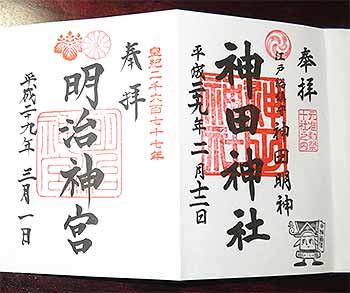 奉拝
元准勅祭
十社之内
江戸総鎮守 神田明神
神田神社
平成二十九年 二月十二日
皇紀二千六百七十七年
奉拝
明治神宮
平成二十九年 三月一日